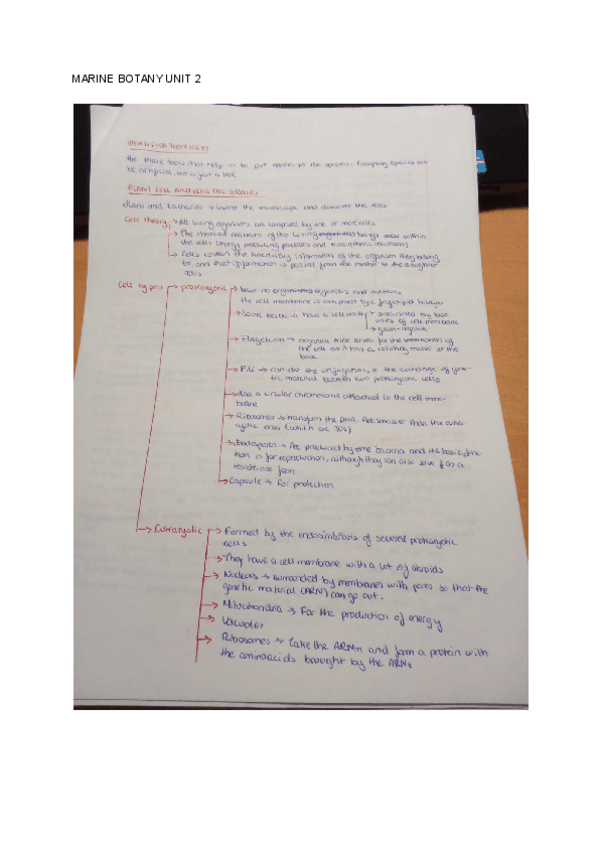 MARINE BOTANY UNIT 2
IDENTIFICATION KEYS
Are those tools that help us to put names to the species. Grouping species can
be artificial, but is just a tool.
PLANT CELL AND
and Zacharias → invent the microscope and discover the cells
Cell theory → All living organisms are composed by one or more cells
→ The chemical reactions of the living beings occur within
the cells (energy producing processes and biosynthetic reactions)
→ Cells contain the hereditary information of the organism they belong
to, and that information is passed from the mother to the daughter
cells
Cell types → prokaryotic → have no organelles and nucleus
the cell membrane is composed by a phospholipid bilayer
→ Some bacteria have a cell wall → surrounded by
of cell membrane
→ gram-negative
→ Flagellum → organelle that serves for the of
the cell and it has a rotating motor at the
base
→ Pili → can do the conjugation, is the exchange of gene-
tic material between two prokaryotic cells
→ Has a circular chromosome attached to the cell mem-
brane
→ Ribosomes → transform the Are smaller than the eukar-
yotic ones (which are 70s)
→ Endospores → Are produced by some bacteria and its basic func-
tion is for reproduction, although they can also serve as a
resistance form
→ Capsule → For protection
→ Eukaryotic → Formed by the endosimbiosis of several prokaryotic
cells
→ They have a cell membrane with a lot of steroids
→ Nucleus → surrounded by membranes with pores so that the
genetic material (ARN) can go out.
→ Mitochondria → For the production of energy
→ Vacuoles
→ Ribosomes → take the ARNm and form a protein with
the aminoacids brought by the ARNt